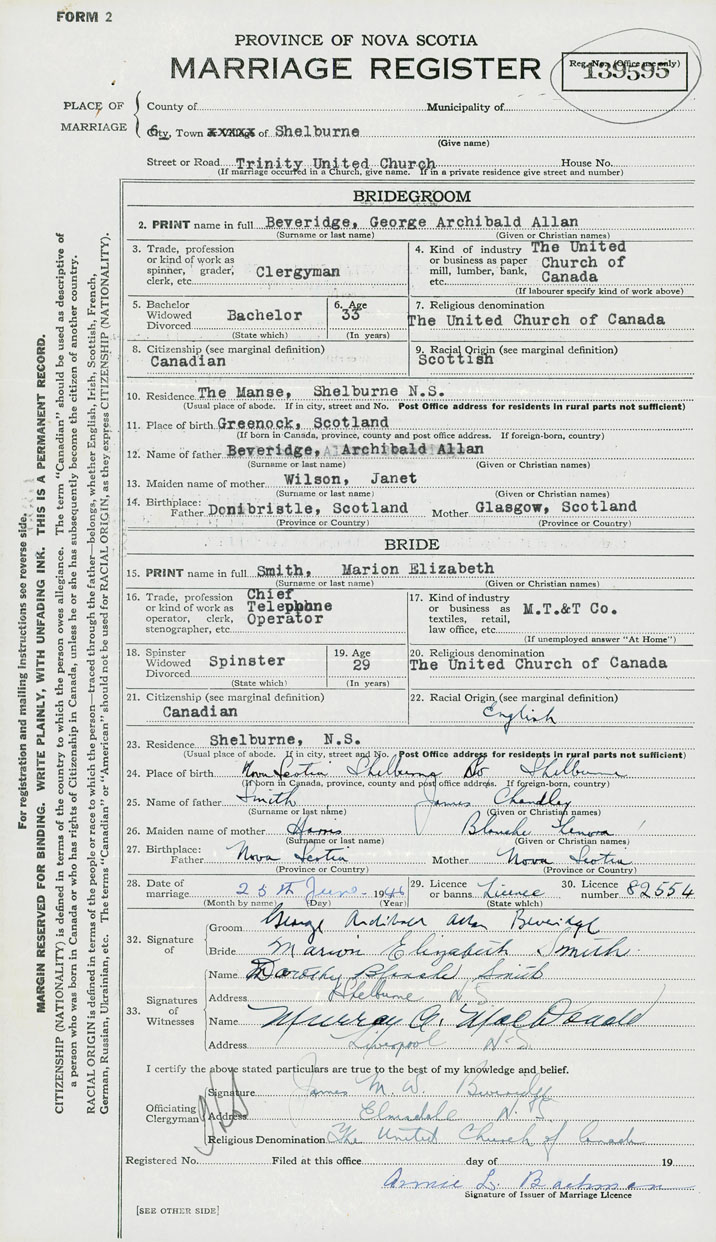 FORM 2
PROVINCE OF NOVA SCOTIA
MARRIAGE REGISTER
Reg. No. (Office use only)
139595
PLACE OF MARRIAGE
County of Municipality of
City, Town xxxxx of Shelburne
(Give name)
Street or Road Trinity United Church House No.
(If marriage occurred in a Church, give name. If in a private residence give street and number)
BRIDEGROOM
2. PRINT name in full Beveridge, George Archibald Allan
(Surname or last name) (Given or Christian names)
3. Trade, profession or kind of work as spinner, grader, clerk, etc. Clergyman
4. Kind of industry or business as paper mill, lumber, bank, etc. The United Church of Canada
(If labourer specify kind of work above)
5. Bachelor Widowed Divorced Bachelor
(State which)
6. Age 33
(In years)
7. Religious denomination
The United Church of Canada
8. Citizenship (see marginal definition)
Canadian
9. Racial Origin (see marginal definition)
Scottish
10. Residence The Manse, Shelburne N.S.
(Usual place of abode. If in city, street and No. Post Office address for residents in rural parts not sufficient)
11. Place of birth Greenock, Scotland
(If born in Canada, province, county and post office address. If foreign-born, country)
12. Name of father Beveridge, Archibald Allan
(Surname or last name) (Given or Christian names)
13. Maiden name of mother Wilson, Janet
(Surname or last name) (Given or Christian names)
14. Birthplace: Father Donibristle, Scotland Mother Glasgow, Scotland
(Province or Country) (Province or Country)
BRIDE
15. PRINT name in full Smith, Marion Elizabeth
(Surname or last name) (Given or Christian names)
16. Trade, profession or kind of work as operator, clerk, stenographer, etc. Chief Telephone Operator
17. Kind of industry or business as textiles, retail, law office, etc. M.T.&T Co.
(If unemployed answer "At Home")
18. Spinster Widowed Divorced Spinster
(State which)
19. Age 29
(In years)
20. Religious denomination
The United Church of Canada
21. Citizenship (see marginal definition)
Canadian
22. Racial Origin (see marginal definition)
English
23. Residence Shelburne, N.S.
(Usual place of abode. If in city, street and No. Post Office address for residents in rural parts not sufficient)
24. Place of birth Nova Scotia Shelburne Co Shelburne
(If born in Canada, province, county and post office address. If foreign-born, country)
25. Name of father Smith James Chandley
(Surname or last name) (Given or Christian names)
26. Maiden name of mother Harris Blanche Lenora
(Surname or last name) (Given or Christian names)
27. Birthplace: Father Nova Scotia Mother Nova Scotia
(Province or Country) (Province or Country)
28. Date of marriage 25th June 1946
(Month by name) (Day) (Year)
29. Licence or banns Licence
(State which)
30. Licence number 82554
32. Signature of
Groom George Archibald Allan Beveridge
Bride Marion Elizabeth Smith
33. Signatures of Witnesses
Name Dorothy Blanche Smith
Address Shelburne N.S.
Name Murray A. MacDonald
Address Liverpool N.S.
I certify the above stated particulars are true to the best of my knowledge and belief.
Officiating Clergyman
Signature James M. W. Beveridge
Address Elmsdale N.S.
Religious Denomination The United Church of Canada
Registered No. Filed at this office day of 19
Annie L. Bachman
Signature of Issuer of Marriage Licence
[SEE OTHER SIDE]
For registration and mailing instructions see reverse side.
MARGIN RESERVED FOR BINDING. WRITE PLAINLY, WITH UNFADING INK. THIS IS A PERMANENT RECORD.
CITIZENSHIP (NATIONALITY) is defined in terms of the country to which the person owes allegiance. The term "Canadian" should be used as descriptive of
a person who was born in Canada or who has rights of Citizenship in Canada, unless he or she has subsequently become the citizen of another country.
RACIAL ORIGIN is defined in terms of the people or race to which the person—traced through the father—belongs, whether English, Irish, Scottish, French,
German, Russian, Ukrainian, etc. The terms "Canadian" or "American" should not be used for RACIAL ORIGIN, as they express CITIZENSHIP (NATIONALITY).